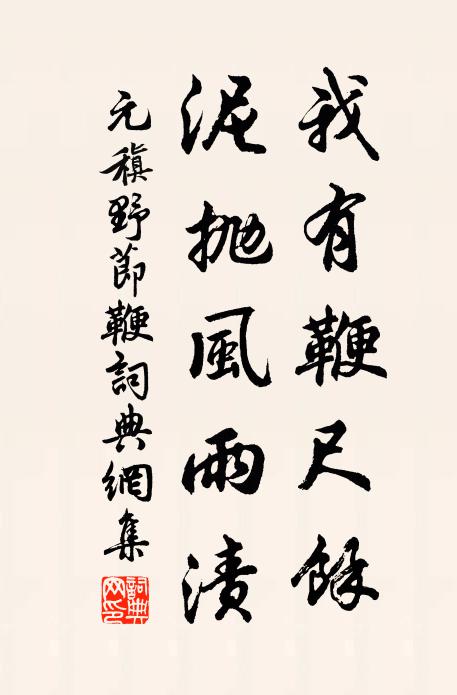 我有鞭尺餘
泥抛風雨漬
元稹野節鞭詞典網集
詞典網印